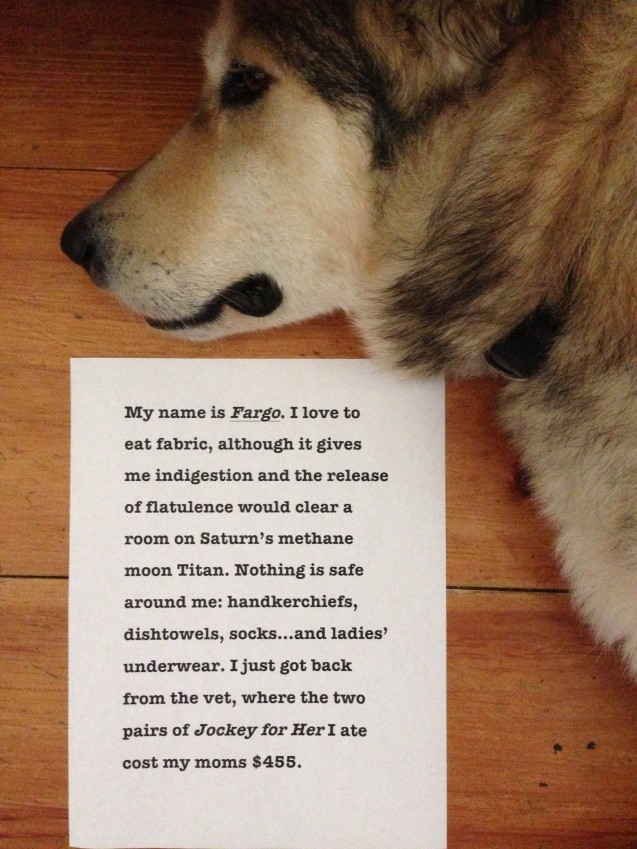 My name is Fargo. I love to
eat fabric, although it gives
me indigestion and the release
of flatulence would clear a
room on Saturn's methane
moon Titan. Nothing is safe
around me: handkerchiefs,
dishtowels, socks...and ladies'
underwear. I just got back
from the vet, where the two
pairs of Jockey for Her I ate
cost my moms $455.